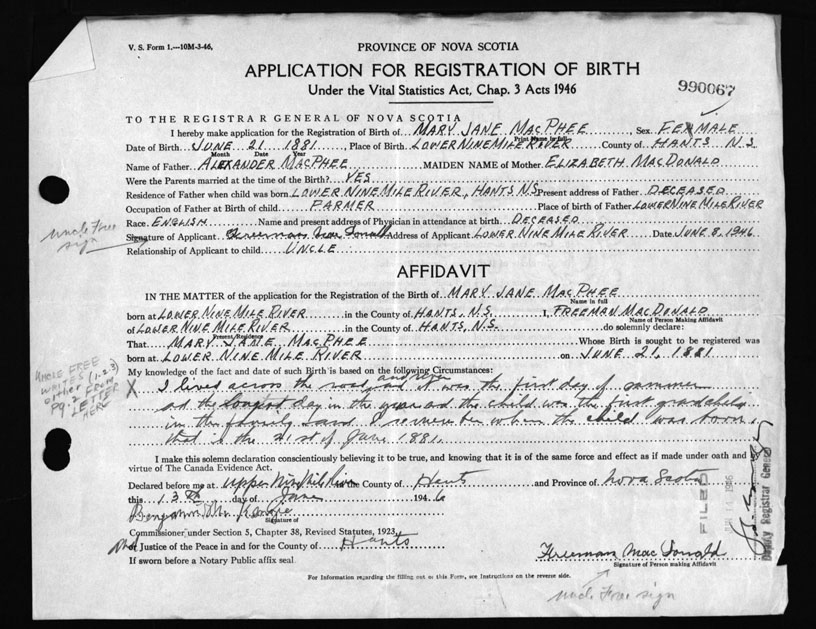 V. S. Form 1.—10M-3-46,
PROVINCE OF NOVA SCOTIA
APPLICATION FOR REGISTRATION OF BIRTH
Under the Vital Statistics Act, Chap. 3 Acts 1946
990067
TO THE REGISTRAR GENERAL OF NOVA SCOTIA
I hereby make application for the Registration of Birth of MARY JANE MACPHEE, Sex FEMALE
Print Name in full
Date of Birth JUNE 21 1881, Place of Birth LOWER NINE MILE RIVER County of HANTS N.S
Month Date Year
Name of Father ALEXANDER MACPHEE MAIDEN NAME of Mother ELIZABETH MACDONALD
Were the Parents married at time of the Birth? YES
Residence of Father when child was born LOWER NINE MILE RIVER, HANTS N.S Present address of Father DECEASED
Occupation of Father at Birth of child FARMER Place of birth of Father LOWER NINE MILE RIVER
Race ENGLISH Name and present address of Physician in attendance at birth DECEASED
uncle Free sign
Signature of Applicant Freeman MacDonald Address of Applicant LOWER NINE MILE RIVER Date JUNE 8, 1946
Relationship of Applicant to child UNCLE
AFFIDAVIT
IN THE MATTER of the application for the Registration of the Birth of MARY JANE MACPHEE
Name in full
born at LOWER NINE MILE RIVER in the County of HANTS, N.S. I, FREEMAN MACDONALD
Name of Person Making Affidavit
of LOWER NINE MILE RIVER in the County of HANTS, N.S. do solemnly declare:
Present Residence
That MARY JANE MACPHEE Whose Birth is sought to be registered was
born at LOWER NINE MILE RIVER on JUNE 21, 1881
My knowledge of the fact and date of such Birth is based on the following Circumstances:
UNCLE FREE
WRITES (1-2-3)
OTHER FROM
PG. 2
LETTER
HERE
X I lived across the road and it was the first day of summer
the longest day in the year and the child was the first grandchild
in the family and I remember when the child was born,
that is the 21st of June 1881.
I make this solemn declaration conscientiously believing it to be true, and knowing that it is of the same force and effect as if made under oath and by
virtue of The Canada Evidence Act.
Declared before me at Upper Nine Mile River the County of Hants and Province of Nova Scotia
this 13th day of June 1946
Benjamin
Signature of
Commissioner under Section 5, Chapter 38, Revised Statutes, 1923,
Justice of the Peace in and for the County of Hants
If sworn before a Notary Public affix seal
Freeman MacDonald
Signature of Person making Affidavit
FILED
Deputy Registrar General
For Information regarding the filling out of this Form, see Instructions on the reverse side.
uncle Free sign